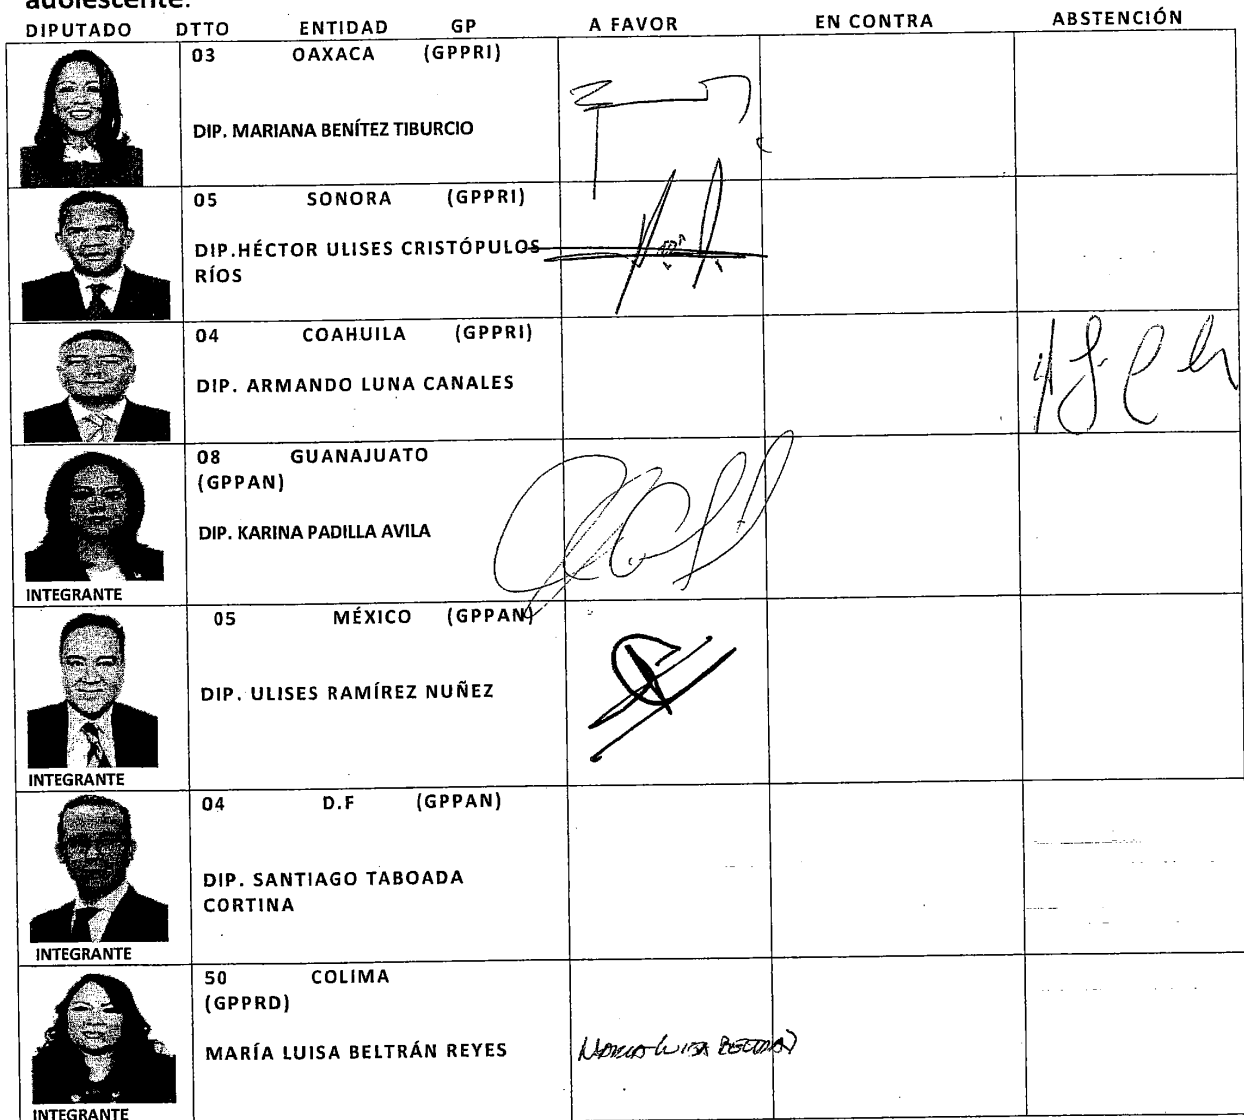 adolescente.
DIPUTADO DTTO ENTIDAD GP A FAVOR EN CONTRA ABSTENCIÓN
03 OAXACA (GPPRI)
DIP. MARIANA BENÍTEZ TIBURCIO
05 SONORA (GPPRI)
DIP.HÉCTOR ULISES CRISTÓPULOS
RÍOS
04 COAHUILA (GPPRI)
DIP. ARMANDO LUNA CANALES
08 GUANAJUATO
(GPPAN)
DIP. KARINA PADILLA AVILA
INTEGRANTE
05 MÉXICO (GPPAN)
DIP. ULISES RAMÍREZ NUÑEZ
INTEGRANTE
04 D.F (GPPAN)
DIP. SANTIAGO TABOADA
CORTINA
INTEGRANTE
50 COLIMA
(GPPRD)
MARÍA LUISA BELTRÁN REYES MARIA LUISA BELTRAN
INTEGRANTE